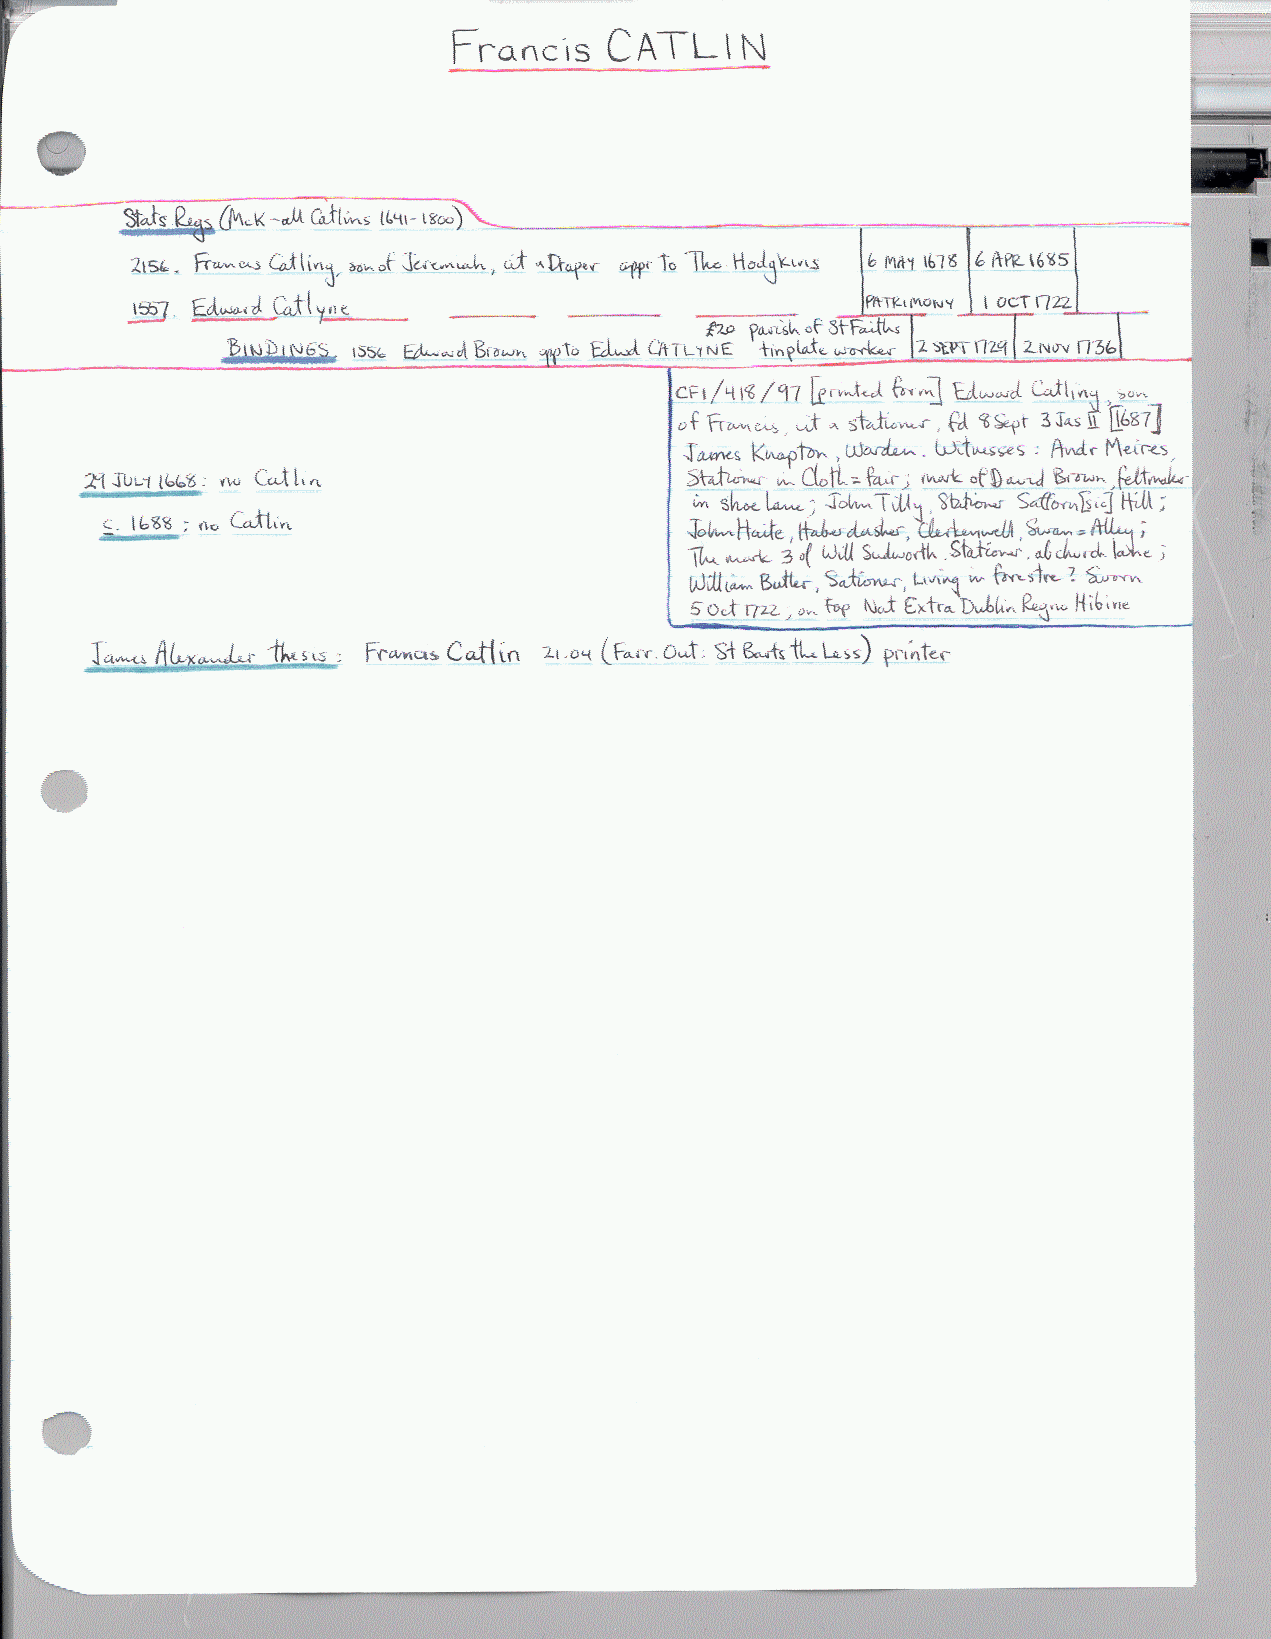 Francis CATLIN
Stats Regs (McK - all Catlins 1641-1800)
2156. Francis Catling, son of Jeremiah, cit & Draper appr to Tho Hodgkins 6 MAY 1678 6 APR 1685
1557. Edward Catlyne PATRIMONY 1 OCT 1722
£20 parish of St Faiths
BINDINGS 1556 Edward Brown app to Edwd CATLYNE tinplate worker 2 SEPT 1729 2 NOV 1736
CF1/418/97 [printed form] Edward Catling, son
of Francis, cit & stationer, fd 8 Sept 3 Jas II [1687]
James Knapton, Warden. Witnesses: Andr Meires,
29 JULY 1668: no Catlin
Stationer in Cloth=fair; mark of David Brown, feltmaker
in shoe lane; John Tilly, Stationer Safforn [sic] Hill;
c. 1688; no Catlin
John Haite, Haberdasher, Clerkenwell, Swan=Alley;
The mark 3 of Will Sudworth. Stationer, abchurch lane;
William Butler, Sationer, Living in forestre? Sworn
5 Oct 1722, on top Nat Extra Dublin Regno Hibine
James Alexander thesis: Francis Catlin 21.04 (Farr. Out: St Barts the Less) printer